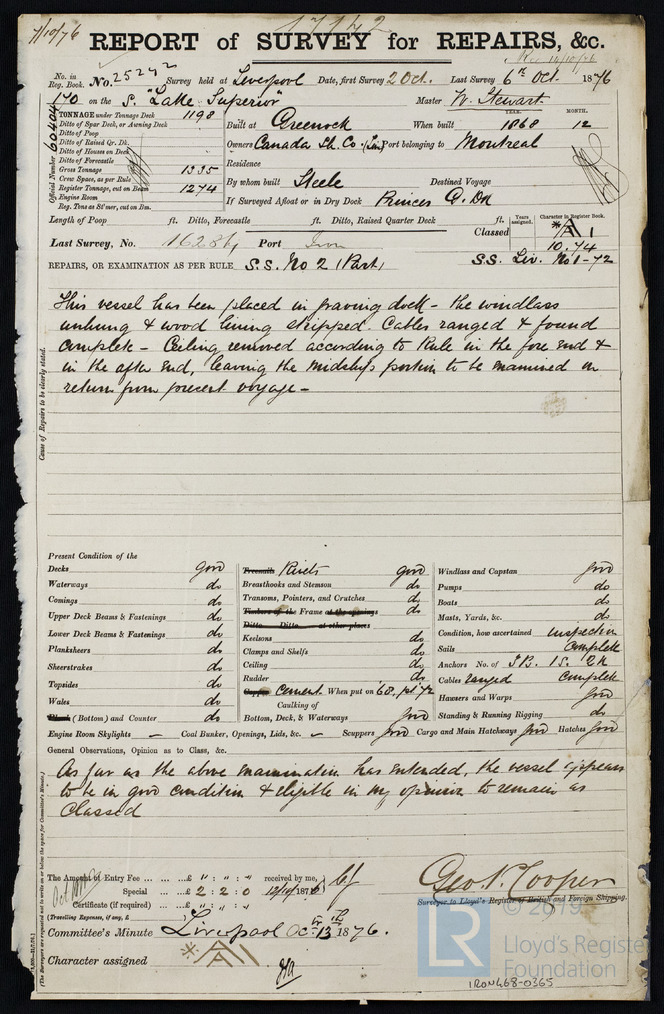 7/10/76
17142
REPORT of SURVEY for REPAIRS, &c.
Rec 14/10/76
No. in Reg. Book. No. 25242 Survey held at Liverpool Date, first Survey 2 Oct. Last Survey 6th Oct. 1876
170 on the S. "Lake Superior" Master W. Stewart
Official Number 60404
TONNAGE under Tonnage Deck 1198
Ditto of Spar Deck, or Awning Deck
Ditto of Poop
Ditto of Raised Qr. Dk.
Ditto of Houses on Deck
Ditto of Forecastle
Gross Tonnage 1335
Crew Space, as per Rule
Register Tonnage, cut on Beam 1274
Engine Room
Reg. Tons as St'mer, cut on Bm.
YEAR. MONTH.
Built at Greenock When built 1868 12
Owners Canada Sh. Co. (Lim) Port belonging to Montreal
Residence
By whom built Steele Destined Voyage
If Surveyed Afloat or in Dry Dock Princes G. Dk
Length of Poop ft. Ditto, Forecastle ft. Ditto, Raised Quarter Deck ft.
Years assigned. Character in Register Book.
Classed * A 1
10.74
Last Survey, No. Port Iron
S.S. Liv. No 1-72
REPAIRS, OR EXAMINATION AS PER RULE S.S. No 2 (Part)
This vessel has been placed in graving dock - the windlass
unhung & wood lining stripped. Cables ranged & found
complete - Ceiling removed according to Rule in the fore end &
in the after end, leaving the midships portion to be examined on
return from present voyage -
Cause of Repairs to be clearly stated.
Present Condition of the
Decks good
Waterways do
Comings do
Upper Deck Beams & Fastenings do
Lower Deck Beams & Fastenings do
Planksheers do
Sheerstrakes do
Topsides do
Wales do
Plank (Bottom) and Counter do
Treenails Rivets good
Breasthooks and Stemson do
Transoms, Pointers, and Crutches do
Timbers of the Frame at the openings do
Ditto Ditto at other places
Keelsons do
Clamps and Shelfs do
Ceiling do
Rudder do
Copper Cement When put on 68. pt 72
Caulking of
Bottom, Deck, & Waterways good
Windlass and Capstan good
Pumps do
Boats do
Masts, Yards, &c. do
Condition, how ascertained inspection
Sails Complete
Anchors No. of 3B. 1S. 2K
Cables ranged Complete
Hawsers and Warps good
Standing & Running Rigging do
Engine Room Skylights — Coal Bunker, Openings, Lids, &c. — Scuppers good Cargo and Main Hatchways good Hatches good
General Observations, Opinion as to Class, &c.
As far as the above examination has extended, the vessel appears
to be in good condition & eligible in my opinion to remain as
Classed
The Amount of Entry Fee ... £ " : " : " received by me,
Special ... £ 2 : 2 : 0 12/10/1876
Certificate (if required) ... £ " : " : "
(Travelling Expenses, if any, £ )
Geo. N. Cooper
Surveyor to Lloyd's Register of British and Foreign Shipping.
Committee's Minute Liverpool Oct 13th 1876.
Character assigned * A 1
(The Surveyors are requested not to write on or below the space for Committee's Minute.)
© 2019
LR Lloyd's Register
Foundation
IRON468-0365